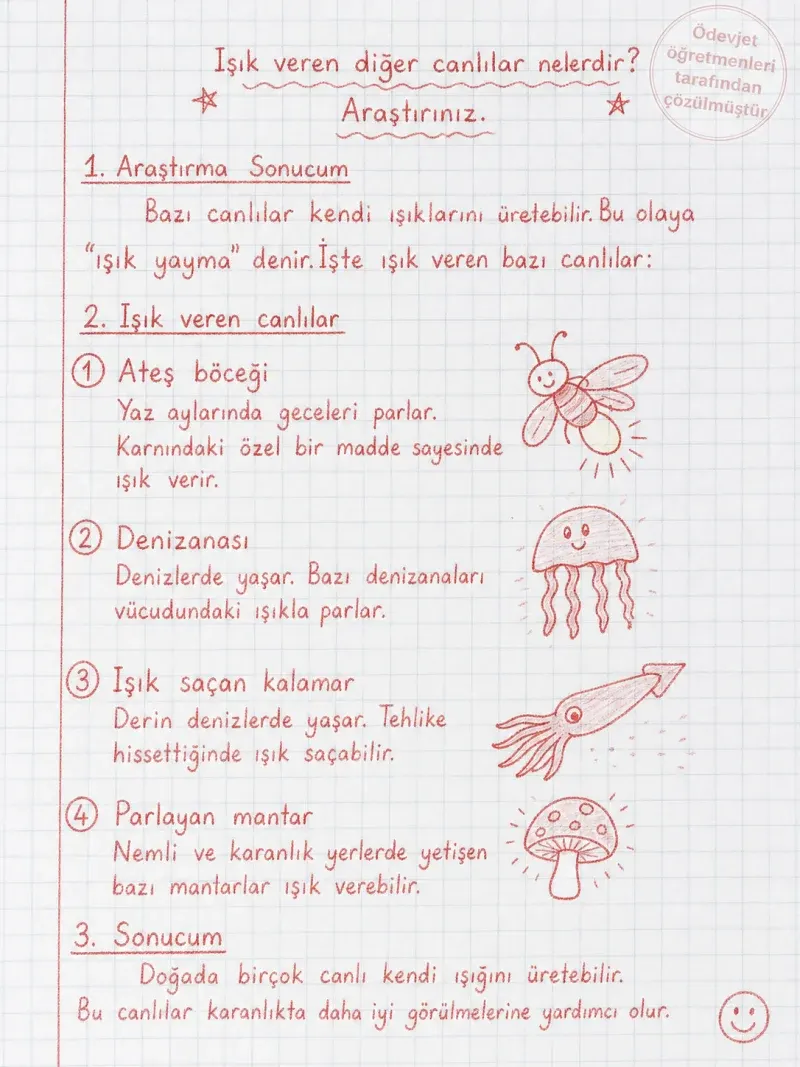 Işık veren diğer canlılar nelerdir?
Araştırınız.
Ödevjet
öğretmenleri
tarafından
çözülmüştür
1. Araştırma Sonucum
Bazı canlılar kendi ışıklarını üretebilir. Bu olaya
"ışık yayma" denir. İşte ışık veren bazı canlılar:
2. Işık veren canlılar
1 Ateş böceği
Yaz aylarında geceleri parlar.
Karnındaki özel bir madde sayesinde
ışık verir.
2 Denizanası
Denizlerde yaşar. Bazı denizanaları
vücudundaki ışıkla parlar.
3 Işık saçan kalamar
Derin denizlerde yaşar. Tehlike
hissettiğinde ışık saçabilir.
4 Parlayan mantar
Nemli ve karanlık yerlerde yetişen
bazı mantarlar ışık verebilir.
3. Sonucum
Doğada birçok canlı kendi ışığını üretebilir.
Bu canlılar karanlıkta daha iyi görülmelerine yardımcı olur.